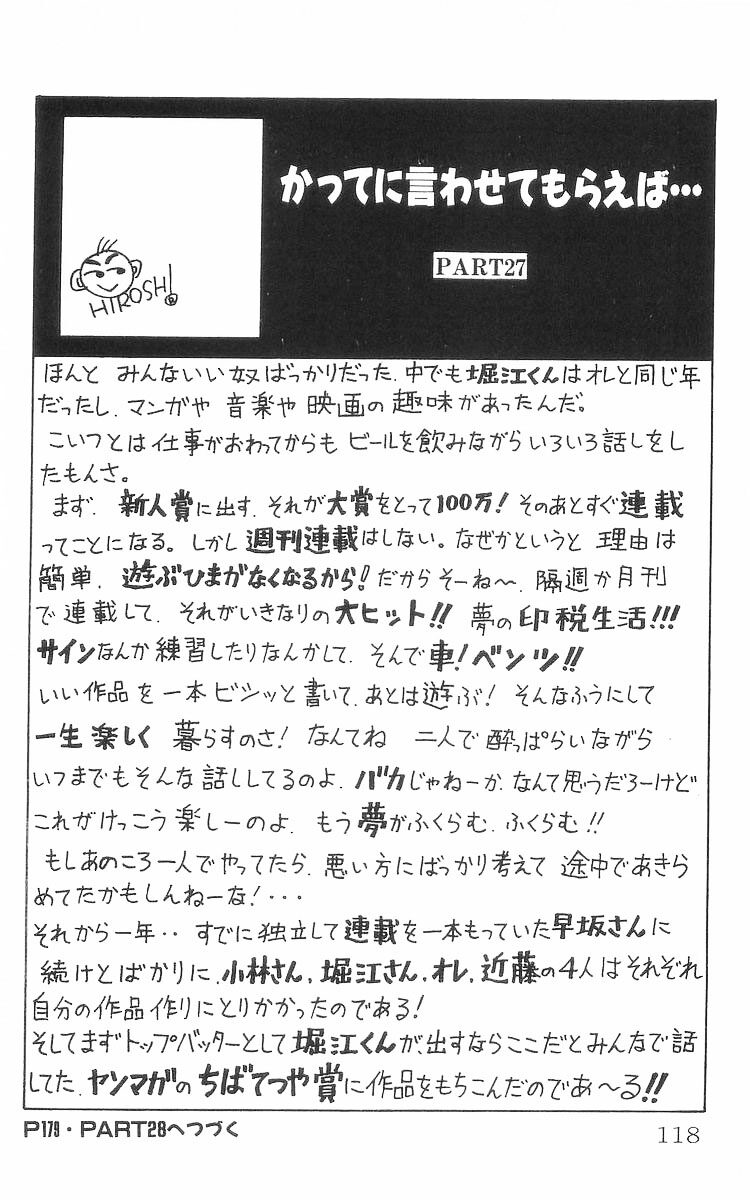 かってに言わせてもらえば…
PART27
HIROSHI
ほんと みんないい奴ばっかりだった. 中でも堀江くんはオレと同じ年
だったし. マンガや 音楽や 映画の 趣味があったんだ。
こいつとは仕事がおわってからも ビールを飲みながらいろいろ話しをし
たもんさ。
まず. 新人賞に出す. それが大賞をとって100万! そのあとすぐ連載
ってことになる。しかし週刊連載はしない。なぜかというと 理由は
簡単. 遊ぶひまがなくなるから! だからそーね〜. 隔週か月刊
で連載して. それがいきなりの大ヒット!! 夢の印税生活!!!
サインなんか練習したりなんかして. そんで車! ベンツ!!
いい作品を一本ビシッと書いて. あとは遊ぶ! そんなふうにして
一生楽しく 暮らすのさ! なんてね 二人で酔っぱらいながら
いつまでもそんな話ししてるのよ. バカじゃねーか. なんて思うだろーけど
これがけっこう楽しーのよ. もう夢がふくらむ. ふくらむ!!
もしあのころ一人でやってたら. 悪い方にばっかり考えて 途中であきら
めてたかもしんねーな!・・・
それから一年・・ すでに独立して連載を一本もっていた早坂さんに
続けとばかりに. 小林さん. 堀江さん. オレ. 近藤の4人はそれぞれ
自分の作品作りにとりかかったのである!
そしてまずトップバッターとして堀江くんが. 出すならここだとみんなで話
してた. ヤンマガのちばてつや賞に作品をもちこんだのであ〜る!!
P179・PART28へつづく
118